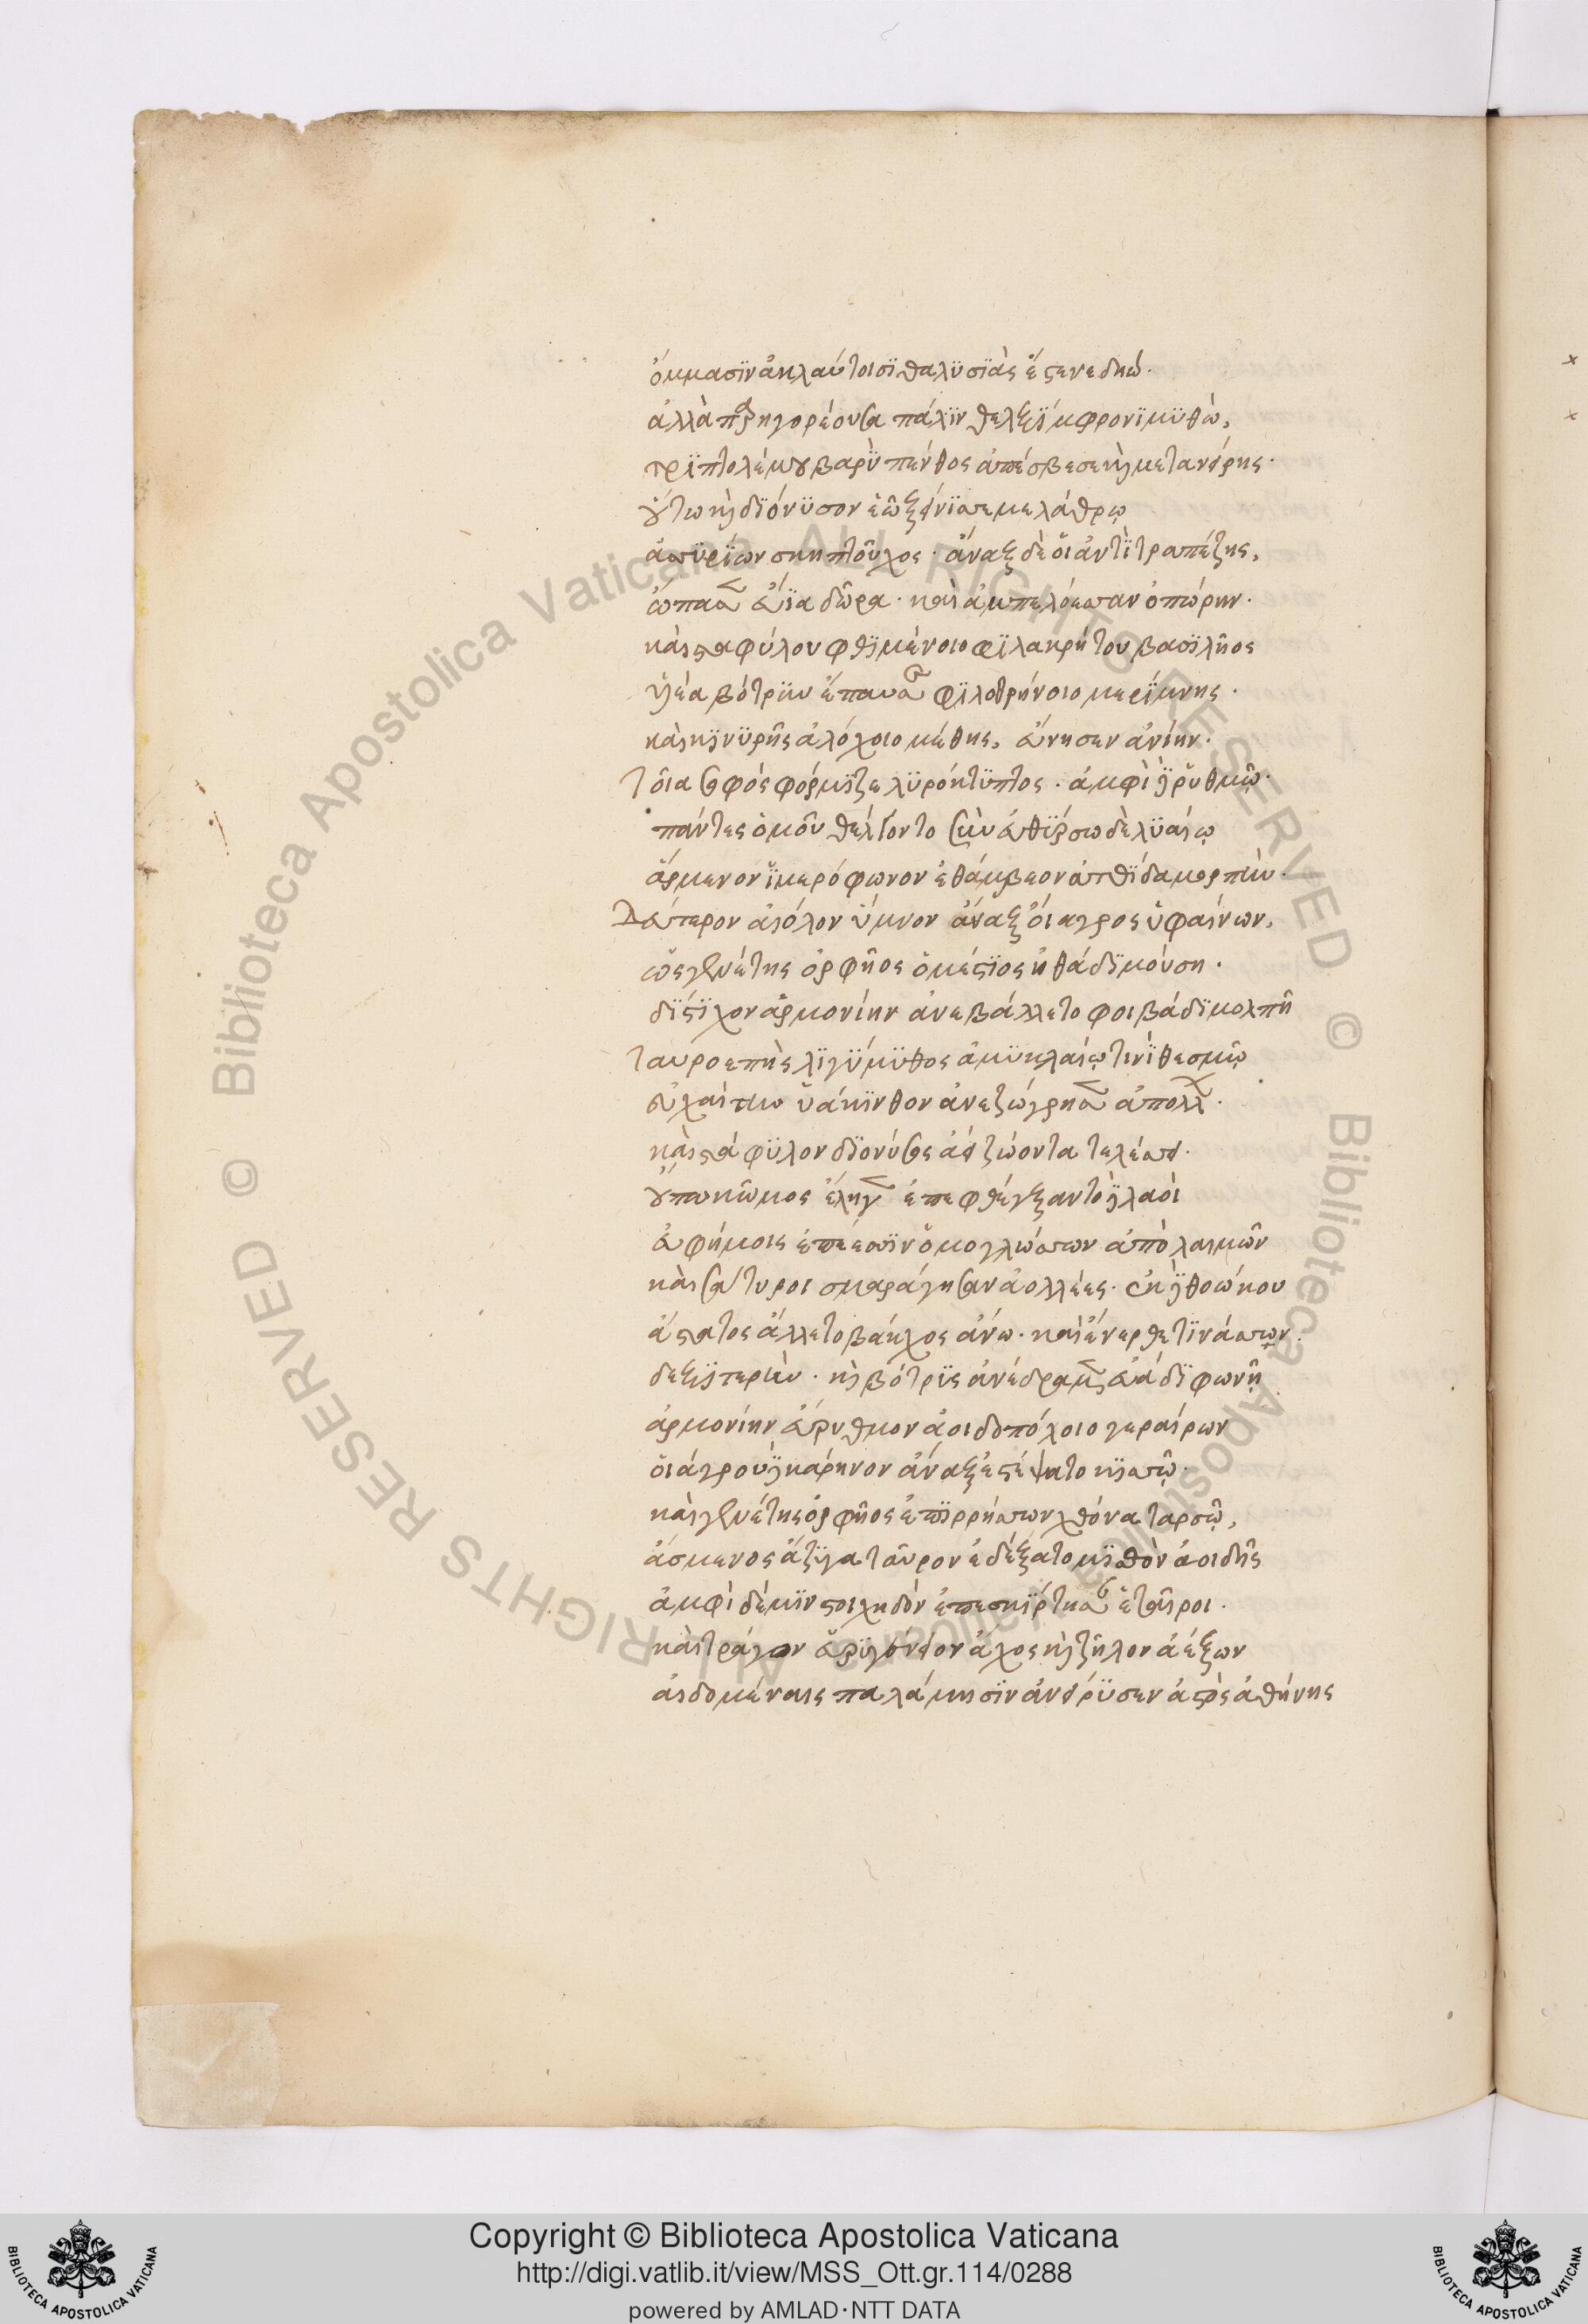 ὄμμασιν ἀκλαύτοισι θαλυσιὰς ἔστενε δηώ.
ἀλλὰ παρηγορέουσα πάλιν θελξίμφρονι μύθω,
τριπτολέμου βαρὺ πένθος ἀπέσβεσε καὶ μετανείρης.
οὕτω καὶ διόνυσον ἑῶ ξείνισσε μελάθρῳ
ἀσσυρίων σκηπτοῦχος. ἄναξ δέ οἱ ἀντὶ τραπέζης,
ὤπασεν εὔια δῶρα. καὶ ἀμπελόεσσαν ὀπώρην.
καὶ σταφύλου φθιμένοιο φιλακρήτου βασιλῆος
υἱέα βότρυν ἔπαυσε φιλοθρήνοιο μερίμνης.
καὶ κινυρῆς ἀλόχοιο μέθης, εὔνησεν ἀνίην.
τοῖα σοφὸς φόρμιζε λυρόκτυπος. ἀμφὶ ῥυθμῷ.
πάντες ὁμοῦ θέλγοντο σὺν εὐθύρσω δὲ λυαίῳ
ἄρμενον ἱμερόφωνον ἐθάμβεον ἀτθίδα μορπήν.
Δεύτερον αἰόλον ὕμνον ἄναξ οἴαγρος ὑφαίνων,
ὡς γενέτης ὀρφῆος ὁμέστιος ἠθάδι μούση.
δίστιχον ἁρμονίην ἀνεβάλλετο φοιβάδι μολπῆ
ταυροεπὴς λιγύμυθος ἀμυκλαίῳ τινὶ θεσμῷ
εὐχαίτην ὑάκινθον ἀνεζώγρησεν ἀπόλλων.
καὶ στάφυλον διόνυσος ἀεὶ ζώοντα τελέσσει.
οὔπω κῶμος ἔληγεν ἐπεφθέγξαντο λαοὶ
εὐφήμοις ἐπέεσσιν ὁμογλώσσων ἀπὸ λαιμῶν
καὶ σάτυροι σμαράγησαν ἀολλέες. ἐκ θοώκου
ἄσχετος ἅλλετο βάκχος ἄνω. καὶ ἔνερθε τινάσσων
δεξιτερήν. καὶ βότρυς ἀνέδραμεν εὐάδι φωνῇ
ἁρμονίην εὔρυθμον ἀοιδοπόλοιο γεραίρων
οἰάγρου κάρηνον ἄναξ ἐστέψατο κισσῷ.
καὶ γενέτης ὀρφῆος ἐπιρρήσσων χθόνα ταρσῷ,
ἄσμενος ἄζυγα ταῦρον ἐδέξατο μισθὸν ἀοιδῆς
ἀμφὶ δέ μιν στοιχηδὸν ἐπεσκίρτησαν ἑταῖροι.
καὶ τράγον εὐρυγένειον ἄχος καὶ ζῆλον ἀέξων
αἰδομέναις παλάμησιν ἀνείρυσεν ἀστὸς ἀθήνης
Copyright © Biblioteca Apostolica Vaticana
http://digi.vatlib.it/view/MSS_Ott.gr.114/0288
powered by AMLAD·NTT DATA